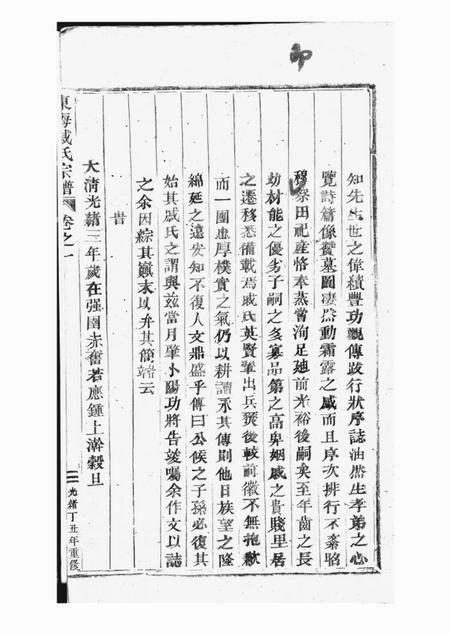 知先生世之偉績豐功觀傳跋行狀序誌油然生孝弟之心
覽詩篇像贊墓圖凄然動霜露之感而且序次排行不紊昭
穆祭田祀產恪奉蒸嘗洵足廸前光裕後嗣矣至年齒之長
幼材能之優劣子嗣之多寡品第之高卑姻戚之貴賤里居
之遷移悉備載焉戚氏英賢輩出兵燹後較前徽不無抱歉
而一團忠厚樸實之氣仍以耕讀永其傳則他日族望之隆
綿延之遠安知不復人文鼎盛乎傳曰公候之子孫必復其
始其戚氏之謂與兹當月肇小陽功將告竣囑余作文以誌
之余因綜其巔末以弁其簡端云
旹
大清光緒三年歲在强圉赤奮若應鍾上澣穀旦
東海戚氏宗譜 卷之一
光緒丁丑年重修